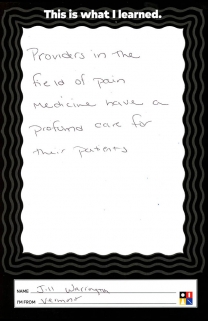 This is what I learned.
Providers in the
field of pain
medicine have a
profound care for
their patients
NAME Jill Warrington
I'M FROM Vermont